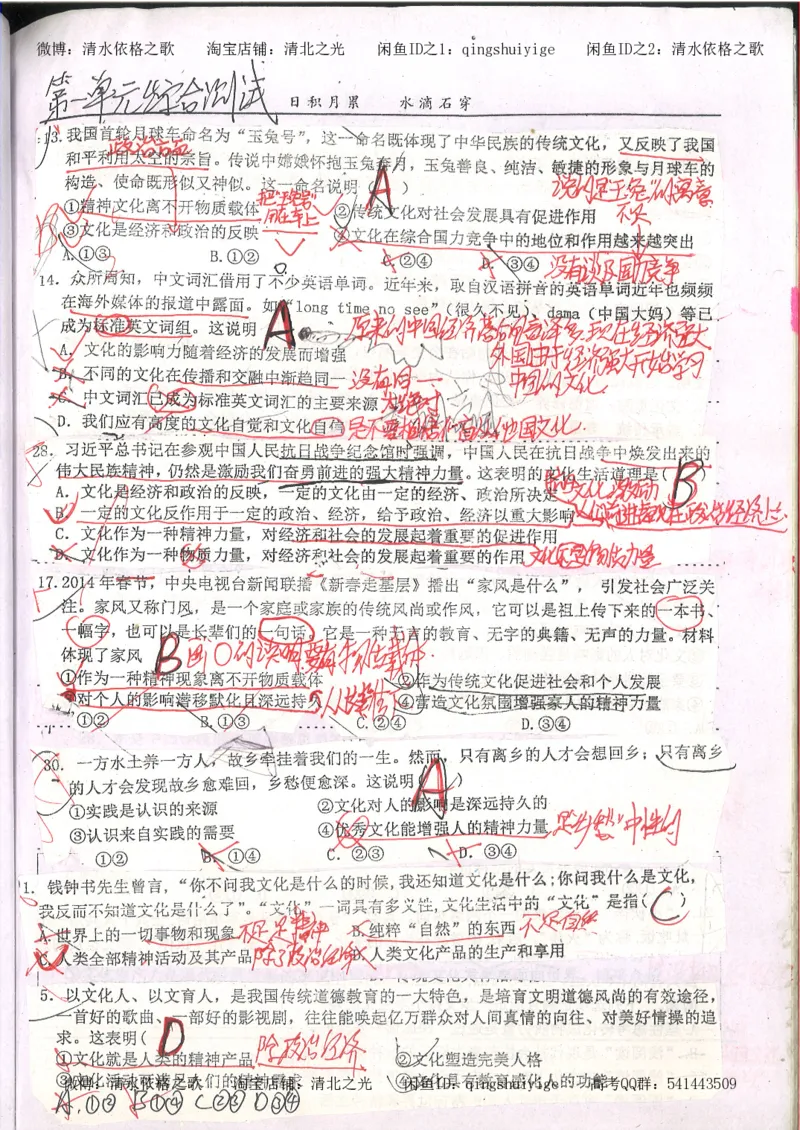 微博：清水依格之歌 淘宝店铺：清北之光 闲鱼ID之1：qingshuiyige 闲鱼ID之2：清水依格之歌
第一单元综合测试 日积月累 水滴石穿
13.我国首轮月球车命名为“玉兔号”，这一命名既体现了中华民族的传统文化，又反映了我国
和平利用太空的宗旨。传说中嫦娥怀抱玉兔奔月，玉兔善良、纯洁、敏捷的形象与月球车的
构造、使命既形似又神似。这一命名说明（A）
说的是玉兔的寓意
①精神文化离不开物质载体 ②传统文化对社会发展具有促进作用
③文化是经济和政治的反映 ④文化在综合国力竞争中的地位和作用越来越突出
A.①③ B.①② C.②④ D.③④ 没有谈及国力竞争
14. 众所周知，中文词汇借用了不少英语单词。近年来，取自汉语拼音的英语单词近年也频频
在海外媒体的报道中露面。如“long time no see”（很久不见）、dama（中国大妈）等已
成为标准英文词组。这说明 A
A. 文化的影响力随着经济的发展而增强
外国由于经济强大开始学习
B. 不同的文化在传播和交融中渐趋同一 没有同一
中国的文化
C. 中文词汇已成为标准英文词汇的主要来源 太绝对
D. 我们应有高度的文化自觉和文化自信
28. 习近平总书记在参观中国人民抗日战争纪念馆时强调，中国人民在抗日战争中焕发出来的
伟大民族精神，仍然是激励我们奋勇前进的强大精神力量。这表明的文化生活道理是（B）
A. 文化是经济和政治的反映，一定的文化由一定的经济、政治所决定
B. 一定的文化反作用于一定的政治、经济，给予政治、经济以重大影响
C. 文化作为一种精神力量，对经济和社会的发展起着重要的促进作用
D. 文化作为一种物质力量，对经济和社会的发展起着重要的作用 文化是精神力量
17.2014年春节，中央电视台新闻联播《新春走基层》播出“家风是什么”，引发社会广泛关
注。家风又称门风，是一个家庭或家族的传统风尚或作风，它可以是祖上传下来的一本书、
一幅字，也可以是长辈们的一句话。它是一种无言的教育、无字的典籍、无声的力量。材料
体现了家风 B 画○的说明要有物质载体
①作为一种精神现象离不开物质载体 ②作为传统文化促进社会和个人发展
③对个人的影响潜移默化且深远持久 ④营造文化氛围增强家人的精神力量
A.①② B.①③ C.②④ D.③④
30. 一方水土养一方人，故乡牵挂着我们的一生。然而，只有离乡的人才会想回乡；只有离乡
的人才会发现故乡愈难回，乡愁便愈深。这说明（A）
①实践是认识的来源 ②文化对人的影响是深远持久的
③认识来自实践的需要 ④优秀文化能增强人的精神力量
①② B. ①④ C. ②③ D. ③④
1. 钱钟书先生曾言，“你不问我文化是什么的时候，我还知道文化是什么；你问我什么是文化，
我反而不知道文化是什么了”。“文化”一词具有多义性，文化生活中的“文化”是指（C）
A.世界上的一切事物和现象 不只是精神 B.纯粹“自然”的东西 不只是自然
C.人类全部精神活动及其产品 D.人类文化产品的生产和享用
5. 以文化人、以文育人，是我国传统道德教育的一大特色，是培育文明道德风尚的有效途径，
一首好的歌曲、一部好的影视剧，往往能唤起亿万群众对人间真情的向往、对美好情操的追
求。这表明（D
①文化就是人类的精神产品 除政治经济 ②文化塑造完美人格
④文化具有教育感化人的功能
微博：清水依格之歌 淘宝店铺：清北之光 闲鱼ID：qingshuiyige 高考QQ群：541443509
A.①② B①④ C②③ D③④